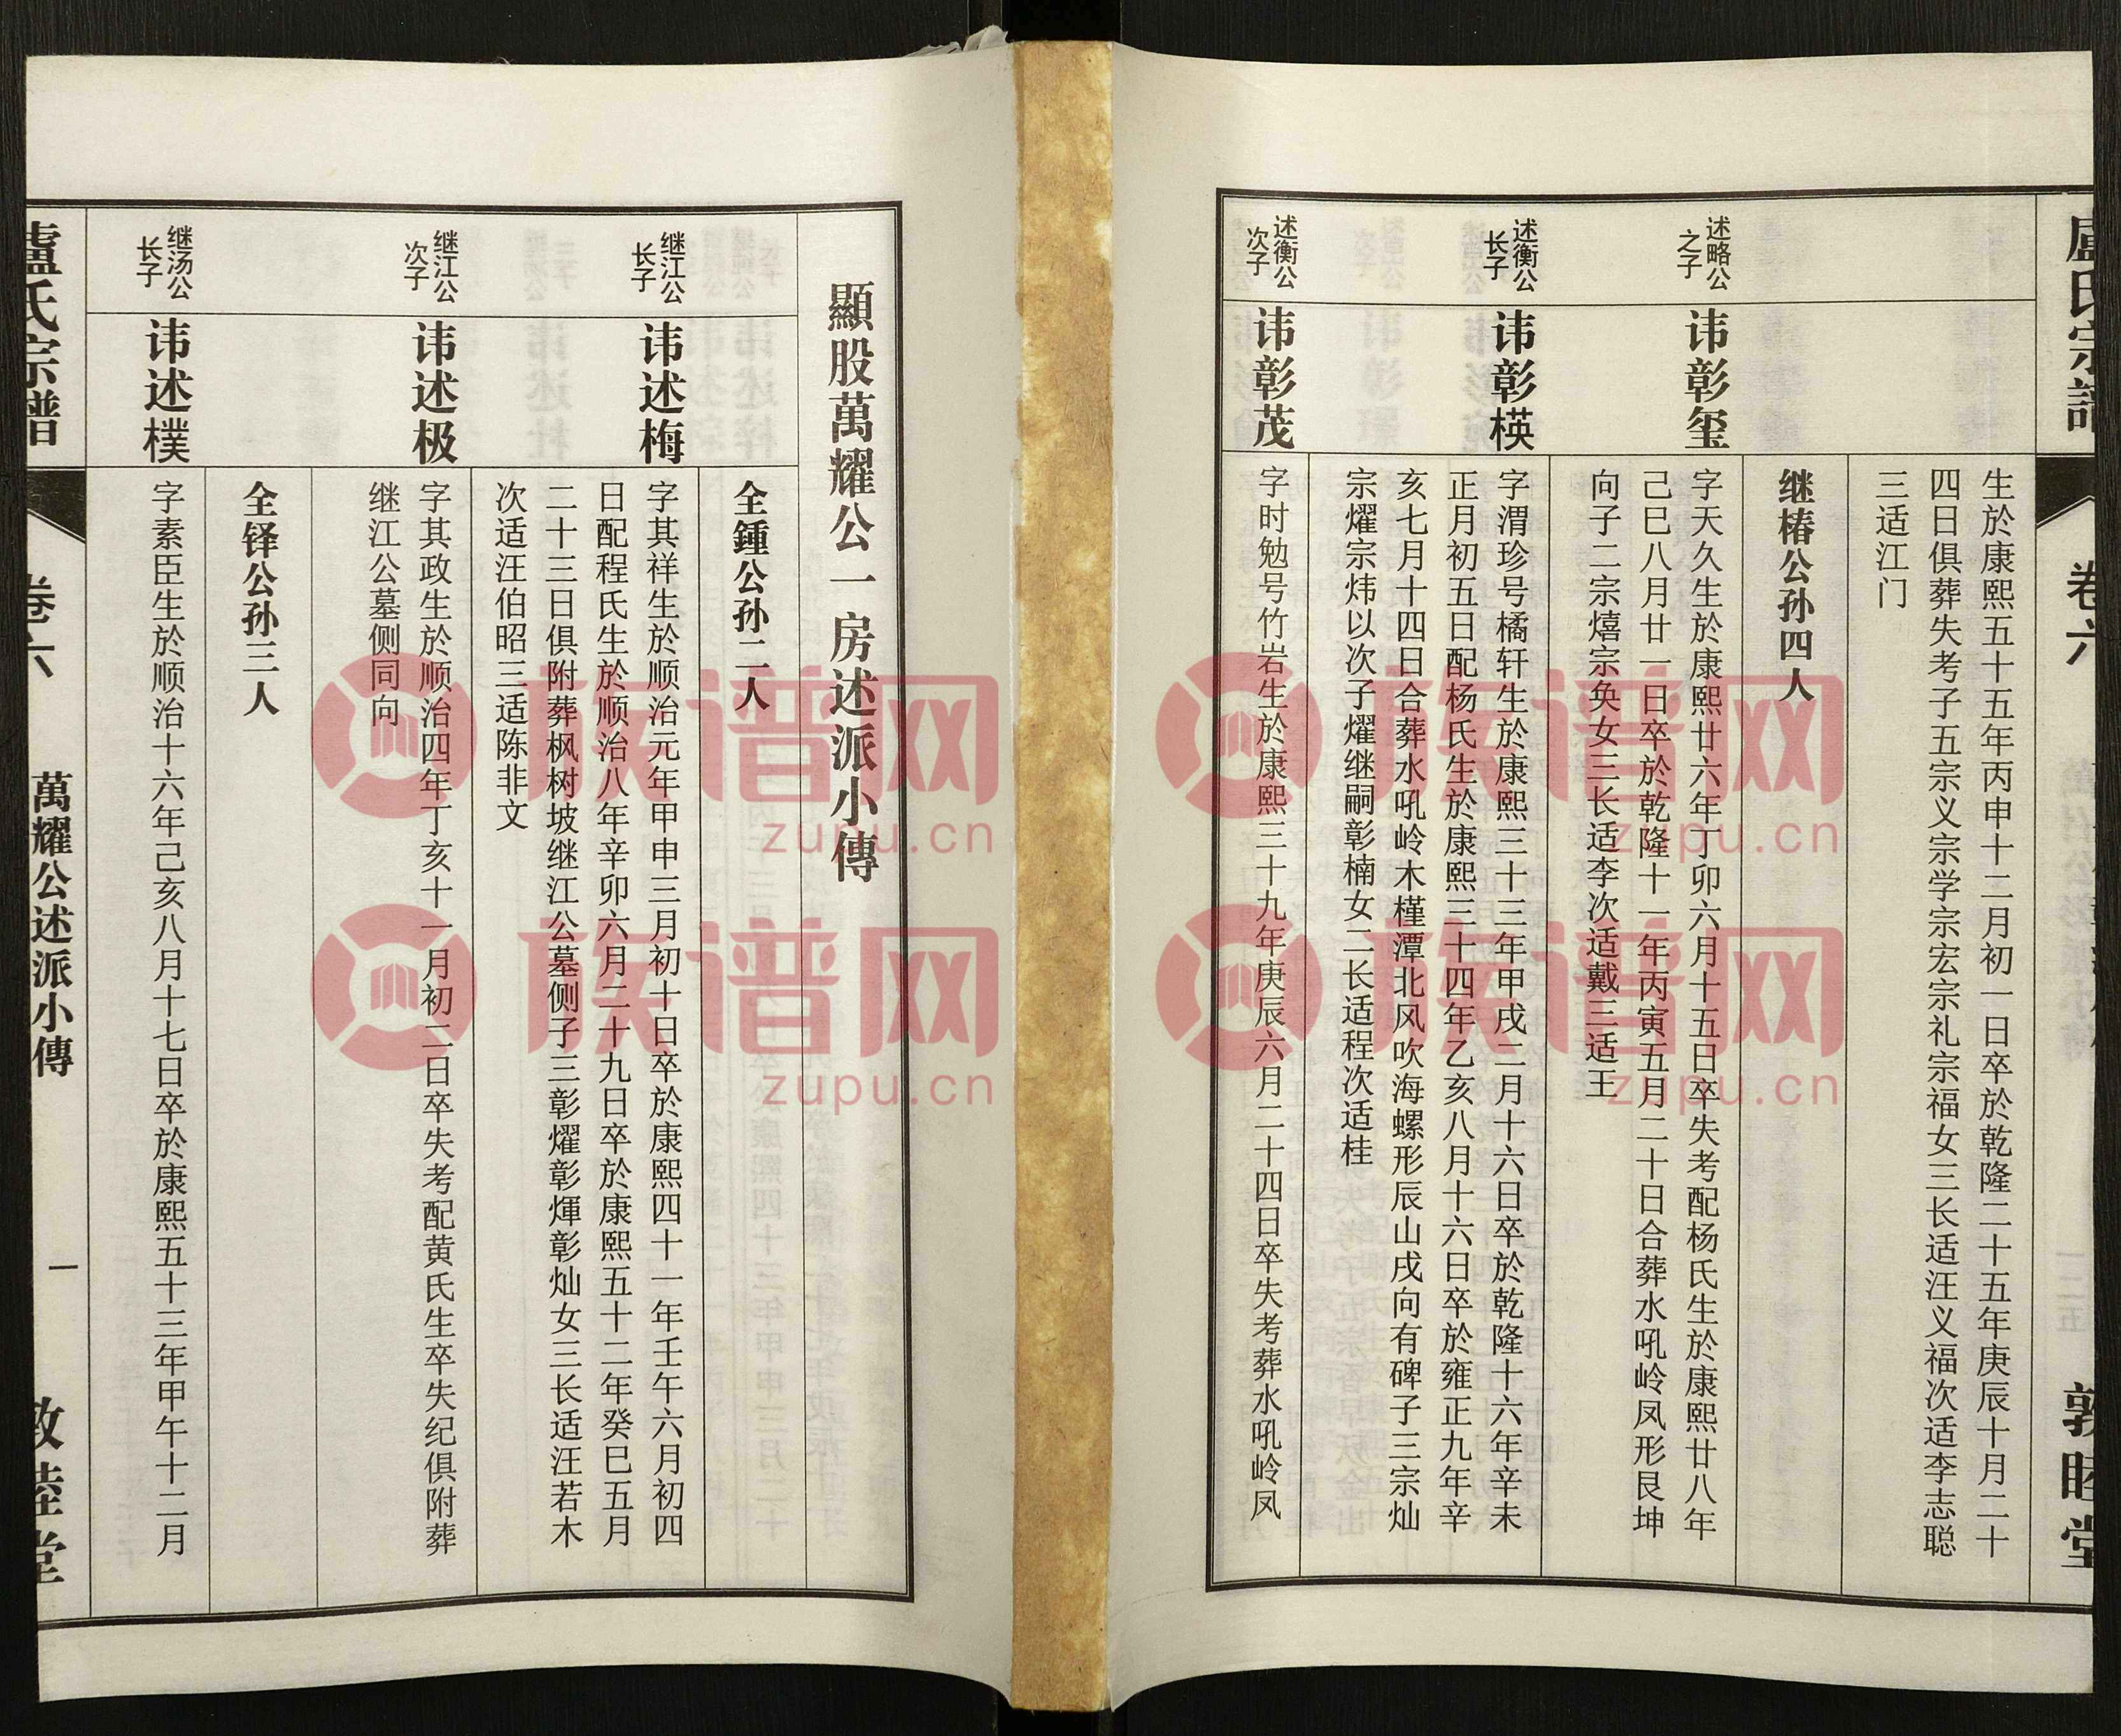 盧氏宗譜
卷六
敦睦堂
生於康熙五十五年丙申十二月初一日卒於乾隆二十五年庚辰十月二十
四日俱葬失考子五宗义宗学宗宏宗礼宗福女三长适汪义福次适李志聪
三适江门
继椿公孙四人
述略公
之子
讳彰玺
字天久生於康熙廿六年丁卯六月十五日卒失考配杨氏生於康熙廿八年
己巳八月廿一日卒於乾隆十一年丙寅五月二十日合葬水吼岭凤形艮坤
向子二宗熺宗奂女三长适李次适戴三适王
述衡公
长子
讳彰楧
字渭珍号橘轩生於康熙三十三年甲戌二月十六日卒於乾隆十六年辛未
正月初五日配杨氏生於康熙三十四年乙亥八月十六日卒於雍正九年辛
亥七月十四日合葬水吼岭木槿潭北风吹海螺形辰山戌向有碑子三宗灿
宗燿宗炜以次子燿继嗣彰楠女二长适程次适桂
述衡公
次子
讳彰茂
字时勉号竹岩生於康熙三十九年庚辰六月二十四日卒失考葬水吼岭凤
顯股萬耀公一房述派小傳
全鍾公孙二人
继江公
长子
讳述梅
字其祥生於顺治元年甲申三月初十日卒於康熙四十一年壬午六月初四
日配程氏生於顺治八年辛卯六月二十九日卒於康熙五十二年癸巳五月
二十三日俱附葬枫树坡继江公墓侧子三彰燿彰煇彰灿女三长适汪若木
次适汪伯昭三适陈非文
继江公
次子
讳述极
字其政生於顺治四年丁亥十一月初二日卒失考配黄氏生卒失纪俱附葬
继江公墓侧同向
全铎公孙三人
继汤公
长子
讳述樸
字素臣生於顺治十六年己亥八月十七日卒於康熙五十三年甲午十二月
盧氏宗譜
卷六
萬耀公述派小傳
一
敦睦堂
族谱网
zupu.cn
族谱网
zupu.cn
族谱网
zupu.cn
族谱网
zupu.cn